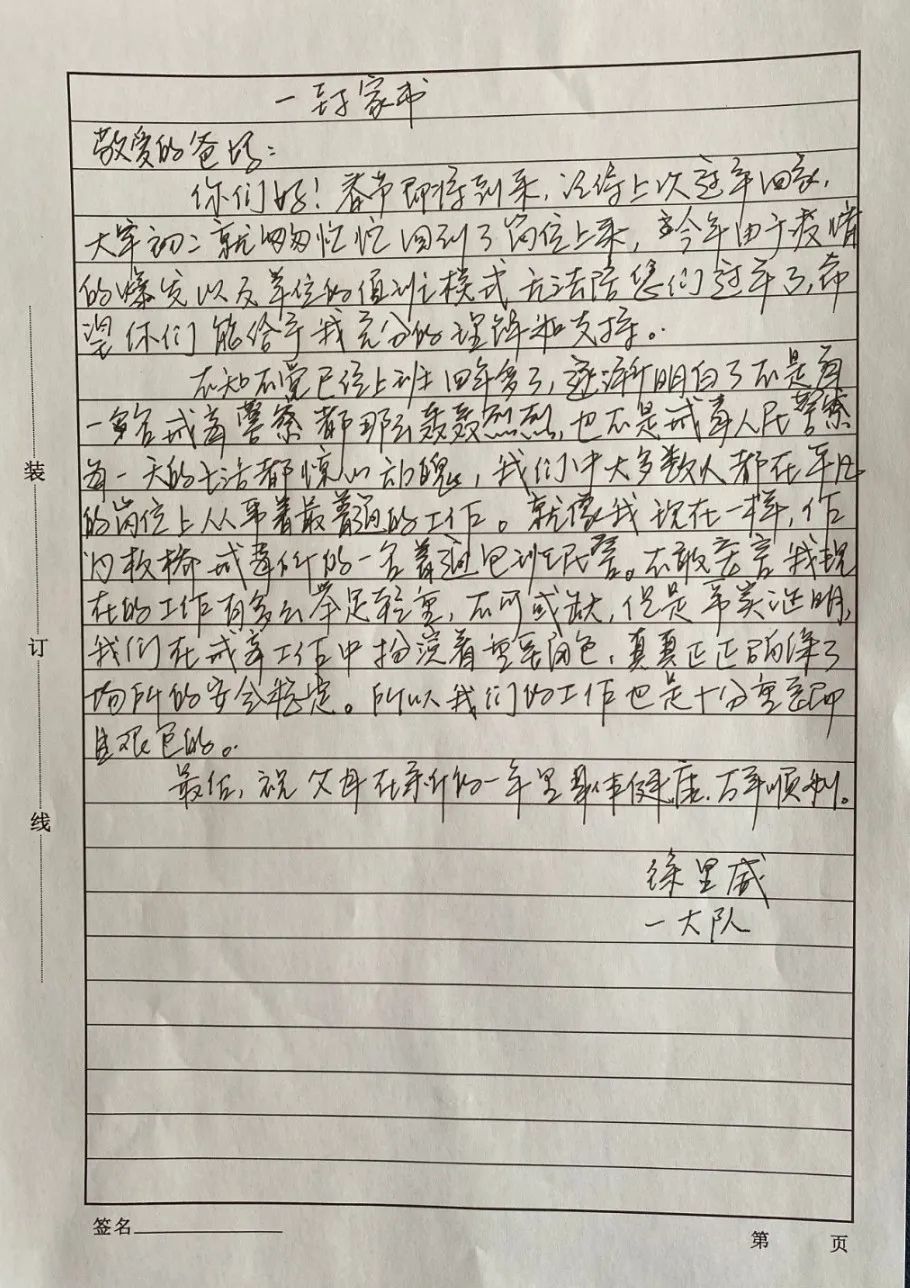 一封家书
敬爱的爸妈：
你们好！春节即将到来，记得上次过年回家，
大年初二就匆匆忙忙回到了岗位上来，今年由于疫情
的爆发以及单位的值班模式无法陪您们过年了，希
望你们能给予我充分的理解和支持。
不知不觉已经上班四年多了，逐渐明白了不是每
一名戒毒警察都那么轰轰烈烈，也不是戒毒人民警察
每一天的生活都惊心动魄，我们中大多数人都在平凡
的岗位上从事着最普通的工作。就像我现在一样，作
为板桥戒毒所的一名普通包班民警。不敢妄言我现
在的工作有多么举足轻重，不可或缺，但是事实证明，
我们在戒毒工作中扮演着重要角色，真真正正确保了
场所的安全稳定。所以我们的工作也是十分重要即
且艰巨的。
最后，祝父母在新的一年里身体健康、万事顺利。
徐里威
一大队
装
订
线
签名
第 页